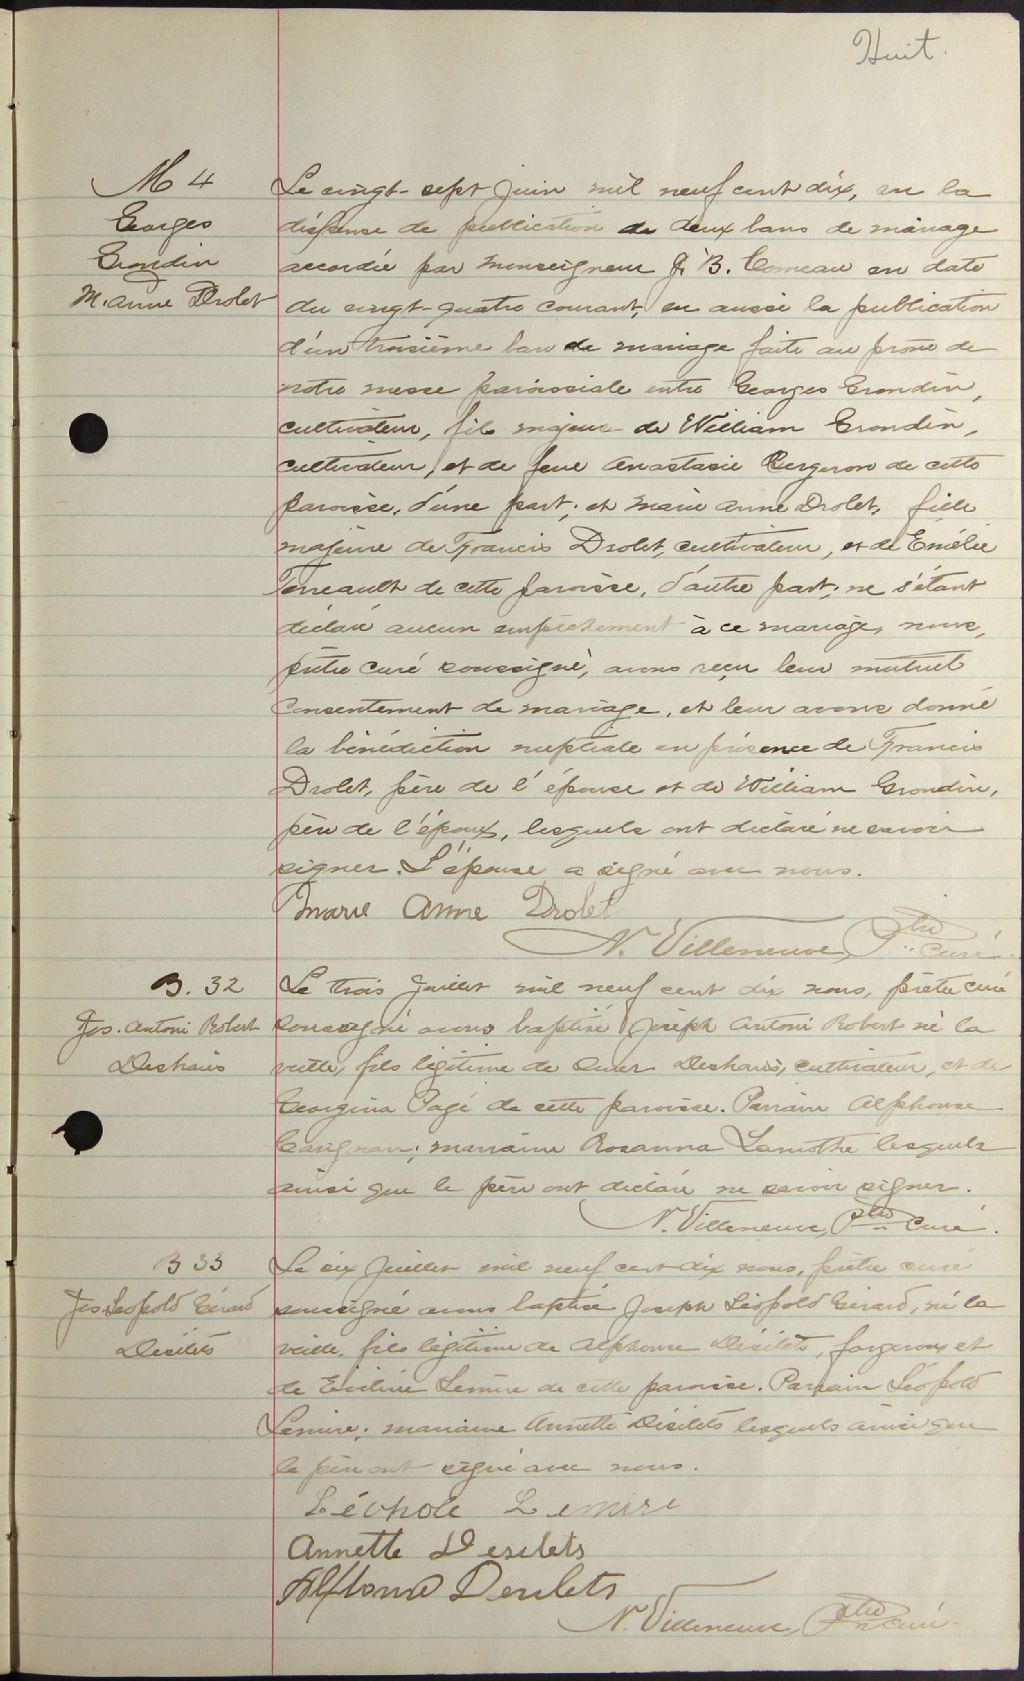 Huit.
M 4
Georges
Grondin
M. Anne Drolet
Le vingt-sept Juin mil neuf cent dix, vu la
dispense de publication de deux bans de mariage
accordée par Monseigneur J. B. Comeau en date
du vingt-quatre courant, vu aussi la publication
d'un troisième ban de mariage faite au prône de
notre messe paroissiale entre Georges Grondin,
cultivateur, fils majeur de William Grondin,
cultivateur, et de feue Anastasie Bergeron de cette
paroisse, d'une part; et Marie Anne Drolet, fille
majeure de Francis Drolet, cultivateur, et de Emélie
de cette paroisse, d'autre part; ne s'étant
déclaré aucun empêchement à ce mariage, nous,
prêtre curé soussigné, avons reçu leur mutuel
consentement de mariage, et leur avons donné
la bénédiction nuptiale en présence de Francis
Drolet, père de l'épouse et de William Grondin,
père de l'époux, lesquels ont déclaré ne savoir
signer. L'épouse a signé avec nous.
Marie Anne Drolet
N. Villeneuve, Ptre curé.
B. 32
Jos. Antoni Robert
Deshaies
Le trois Juillet mil neuf cent dix nous, prêtre curé
soussigné avons baptisé Joseph Antoni Robert né la
veille, fils légitime de Omer Deshaies, cultivateur, et de
Georgina Pagé de cette paroisse. Parrain Alphonse
Carignan; marraine Rosanna Lamothe lesquels
ainsi que le père ont déclaré ne savoir signer.
N. Villeneuve, Ptre Curé.
B 33
Jos Léopold Gérard
Désilets
Le six Juillet mil neuf cent dix nous, prêtre curé
soussigné avons baptisé Joseph Léopold Gérard, né la
veille, fils légitime de Alphonse Désilets, forgeron, et
de Lemire de cette paroisse. Parrain Léopold
Lemire; marraine Annette Désilets lesquels ainsi que
le père ont signé avec nous.
Lemire
Annette Desilets
Desilets
N. Villeneuve, Ptre curé.